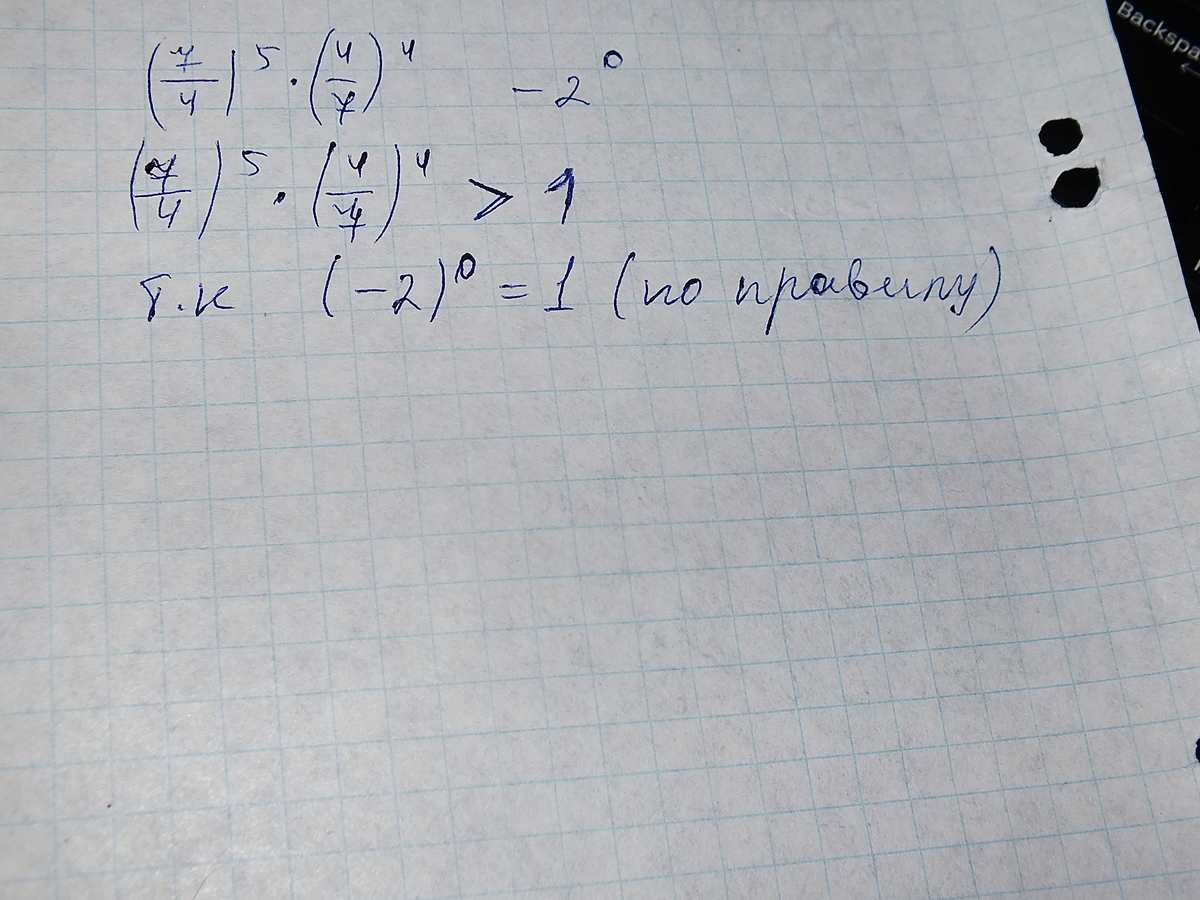 (7/4)^5 · (4/7)^4 -2^0
(7/4)^5 · (4/7)^4 > 1
т.к (-2)^0 = 1 (по правилу)
Backspa